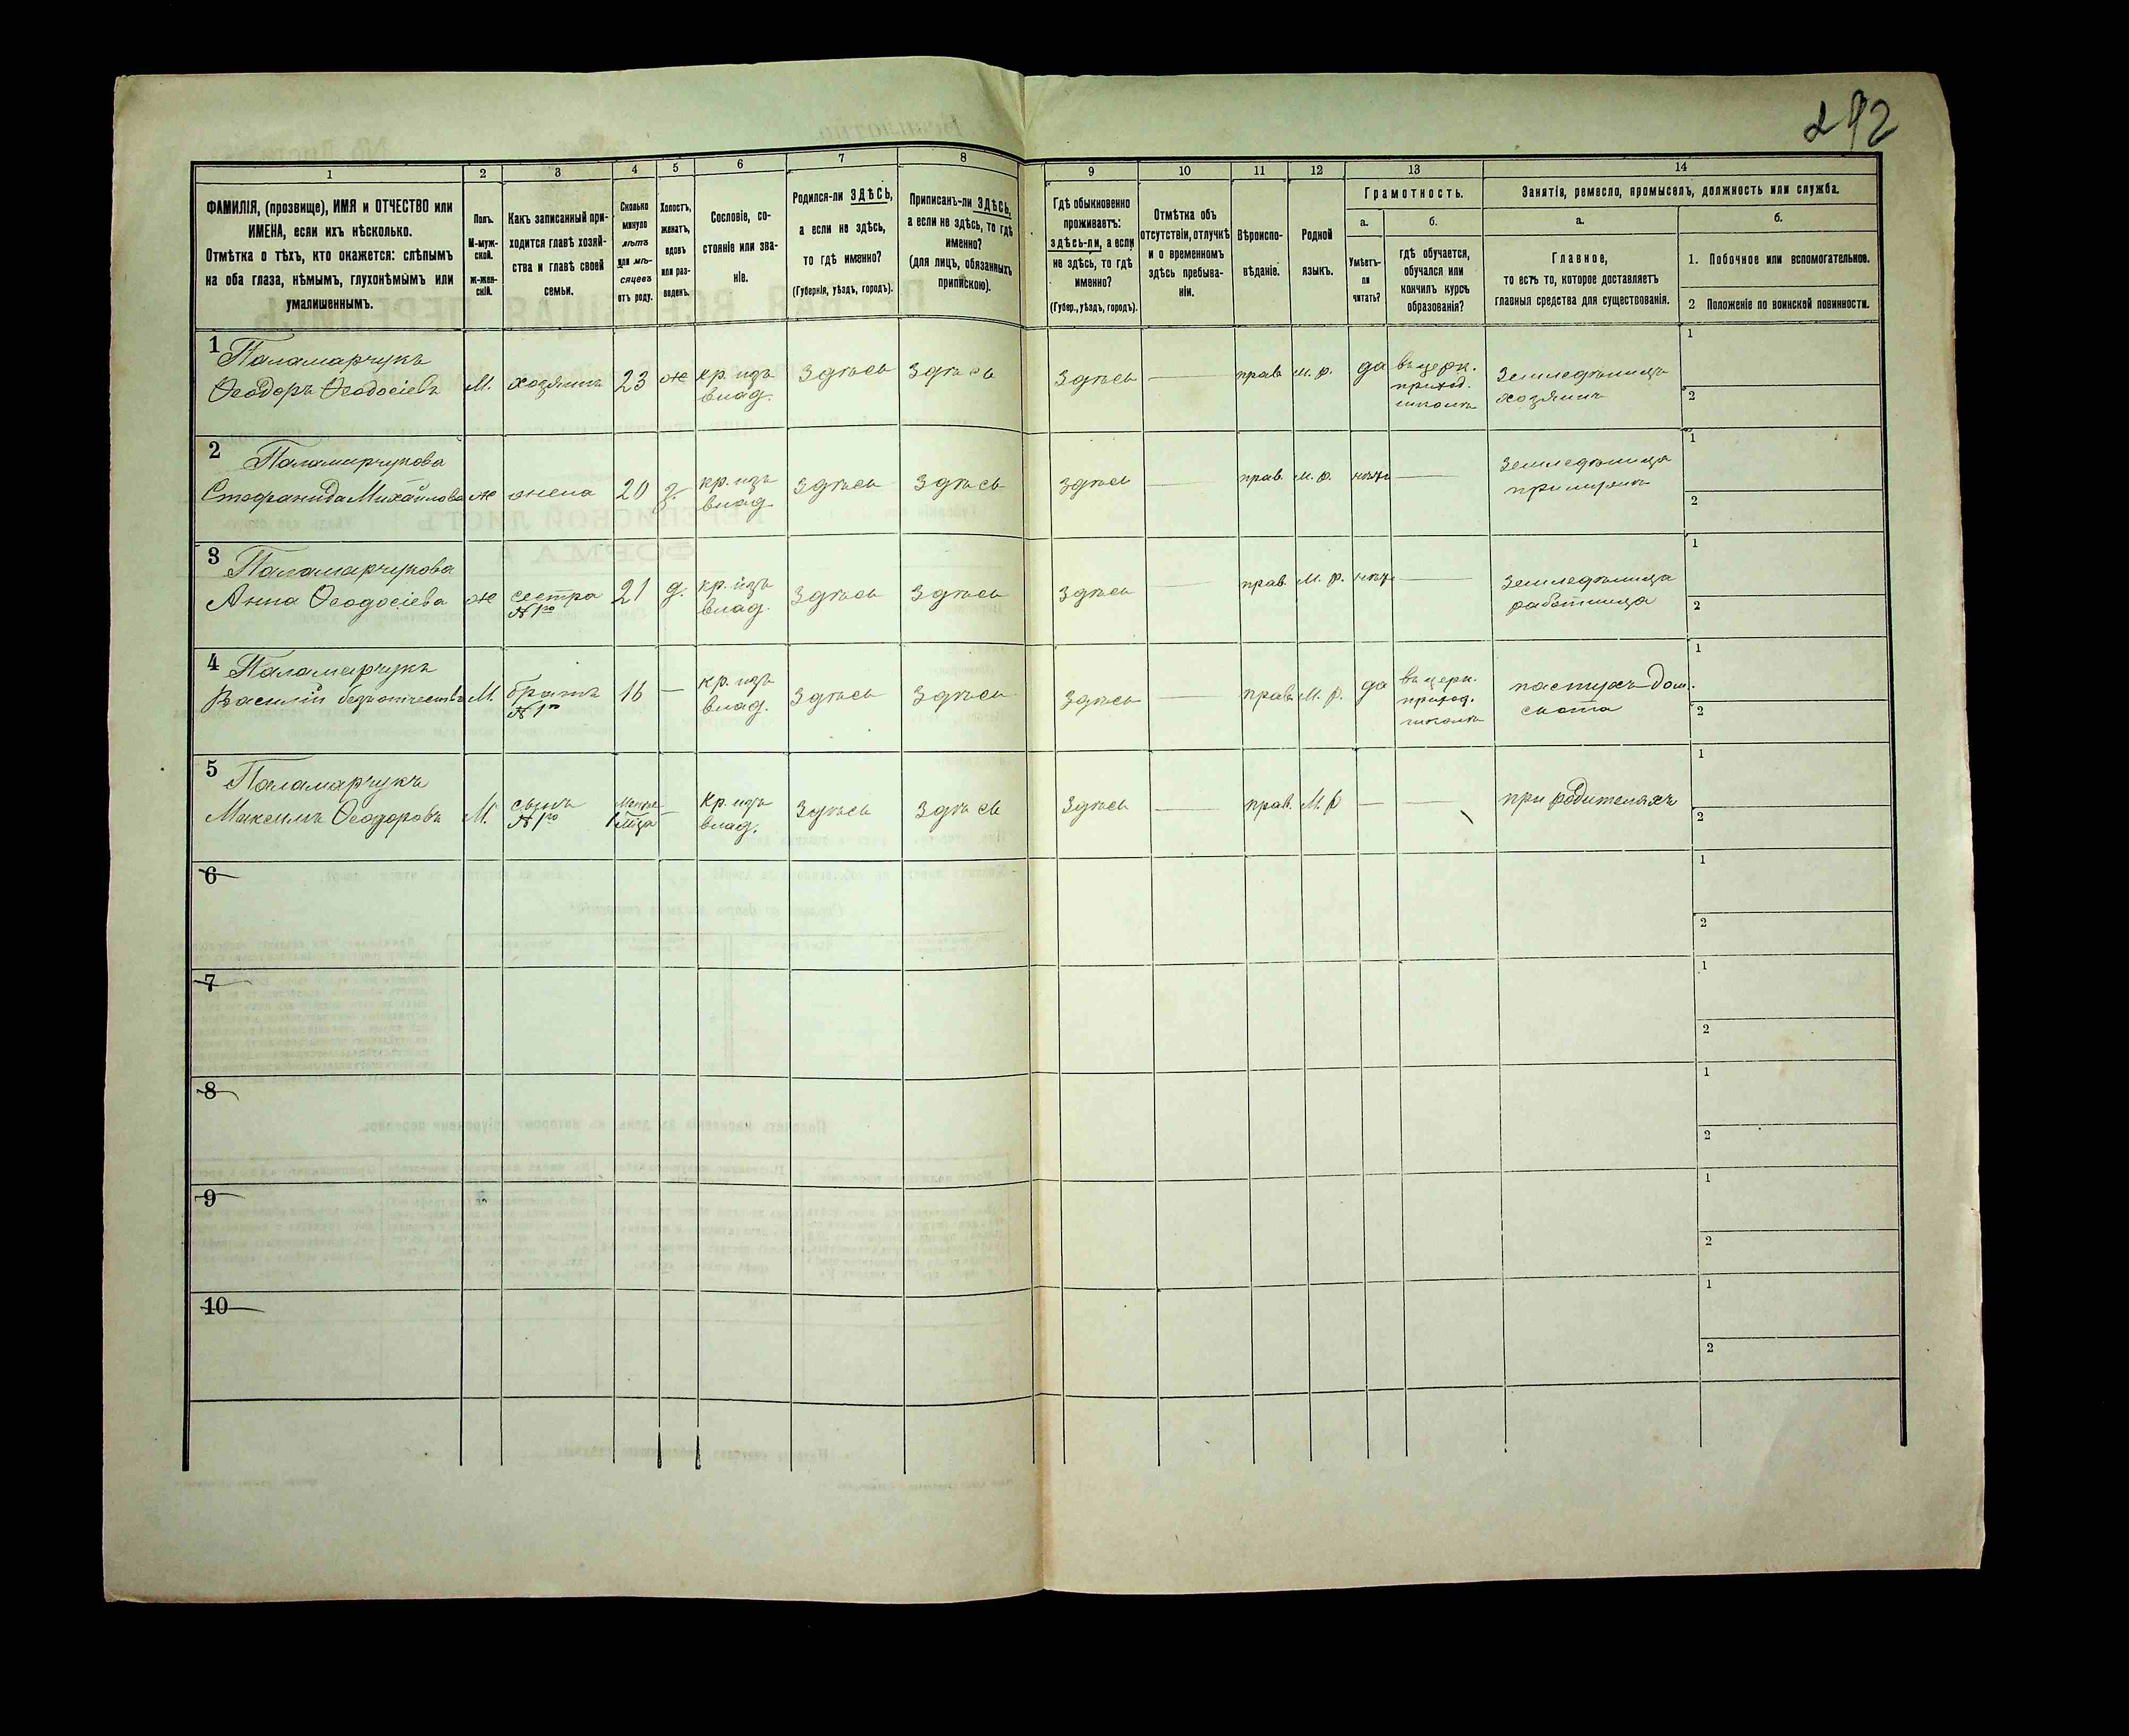 292
1
2
3
4
5
6
7
8
9
10
11
12
13
14
ФАМИЛІЯ, (прозвище), ИМЯ и ОТЧЕСТВО или
ИМЕНА, если ихъ нѣсколько.
Отмѣтка о тѣхъ, кто окажется: слѣпымъ
на оба глаза, нѣмымъ, глухонѣмымъ или
умалишеннымъ.
Полъ.
М-муж-
ской.
ж-жен-
скій.
Какъ записанный при-
ходится главѣ хозяй-
ства и главѣ своей
семьи.
Сколько
минуло
лѣтъ
или мѣ-
сяцевъ
отъ роду.
Холостъ,
женатъ,
вдовъ
или раз-
веденъ.
Сословіе, со-
стояніе или зва-
ніе.
Родился-ли ЗДѢСЬ,
а если не здѣсь,
то гдѣ именно?
(Губернія, уѣздъ, городъ).
Приписанъ-ли ЗДѢСЬ,
а если не здѣсь, то гдѣ
именно?
(для лицъ, обязанныхъ
припискою).
Гдѣ обыкновенно
проживаетъ:
здѣсь-ли, а если
не здѣсь, то гдѣ
именно?
(Губер., уѣздъ, городъ).
Отмѣтка объ
отсутствіи, отлучкѣ
и о временномъ
здѣсь пребыва-
ніи.
Вѣроиспо-
вѣданіе.
Родной
языкъ.
Грамотность.
а.
Умѣетъ-
ли
читать?
б.
гдѣ обучается,
обучался или
кончилъ курсъ
образованія?
Занятія, ремесло, промыселъ, должность или служба.
а.
Главное,
то есть то, которое доставляетъ
главныя средства для существованія.
б.
1. Побочное или вспомогательное.
2 Положеніе по воинской повинности.
1 Паламарчукъ
Ѳеодоръ Ѳеодосіевъ М. хозяинъ 23 ж кр. изъ влад. здѣсь здѣсь здѣсь — прав м. р. да въ церк. приход. школѣ Земледѣлецъ хозяинъ 1 2
2 Паламарчукова
Стефанида Михайлова ж жена 20 з. кр. изъ влад здѣсь здѣсь здѣсь — прав. м. р. нѣтъ — земледѣлица при мужѣ 1 2
3 Паламарчукова
Анна Ѳеодосіева ж сестра № 1го 21 д. кр. изъ влад. здѣсь здѣсь здѣсь — прав. м. р. нѣтъ — земледѣлица работница 1 2
4 Паламарчукъ
Василій безъ отчества М. братъ № 1го 16 — кр. изъ влад. здѣсь здѣсь здѣсь — прав. м. р. да въ церк. приход. школѣ пастухъ дом. скота 1 2
5 Паламарчукъ
Максимъ Ѳеодоровъ М. сынъ № 1го 1 мѣца — кр. изъ влад. здѣсь здѣсь здѣсь — прав. М. р — — при родителяхъ 1 2
6 1 2
7 1 2
8 1 2
9 1 2
10 1 2